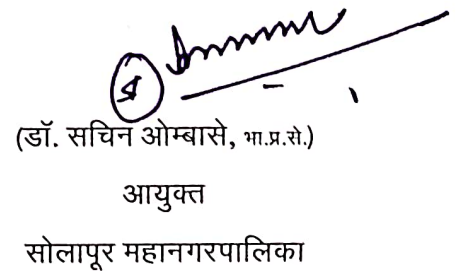 (डॉ. सचिन ओम्बासे, भा.प्र.से.)
आयुक्त
सोलापूर महानगरपालिका